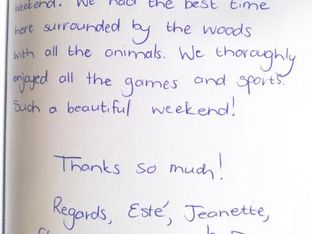 weekend. We had the best time
here surrounded by the woods
with all the animals. We thoroughly
enjoyed all the games and sports.
Such a beautiful weekend!
Thanks so much!
Regards, Esté, Jeanette,